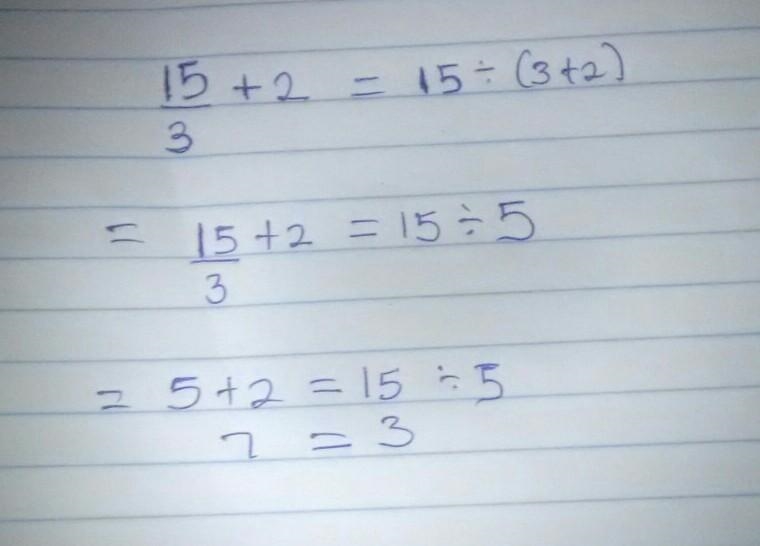 15/3 + 2 = 15 ÷ (3+2)
= 15/3 + 2 = 15 ÷ 5
= 5 + 2 = 15 ÷ 5
7 = 3